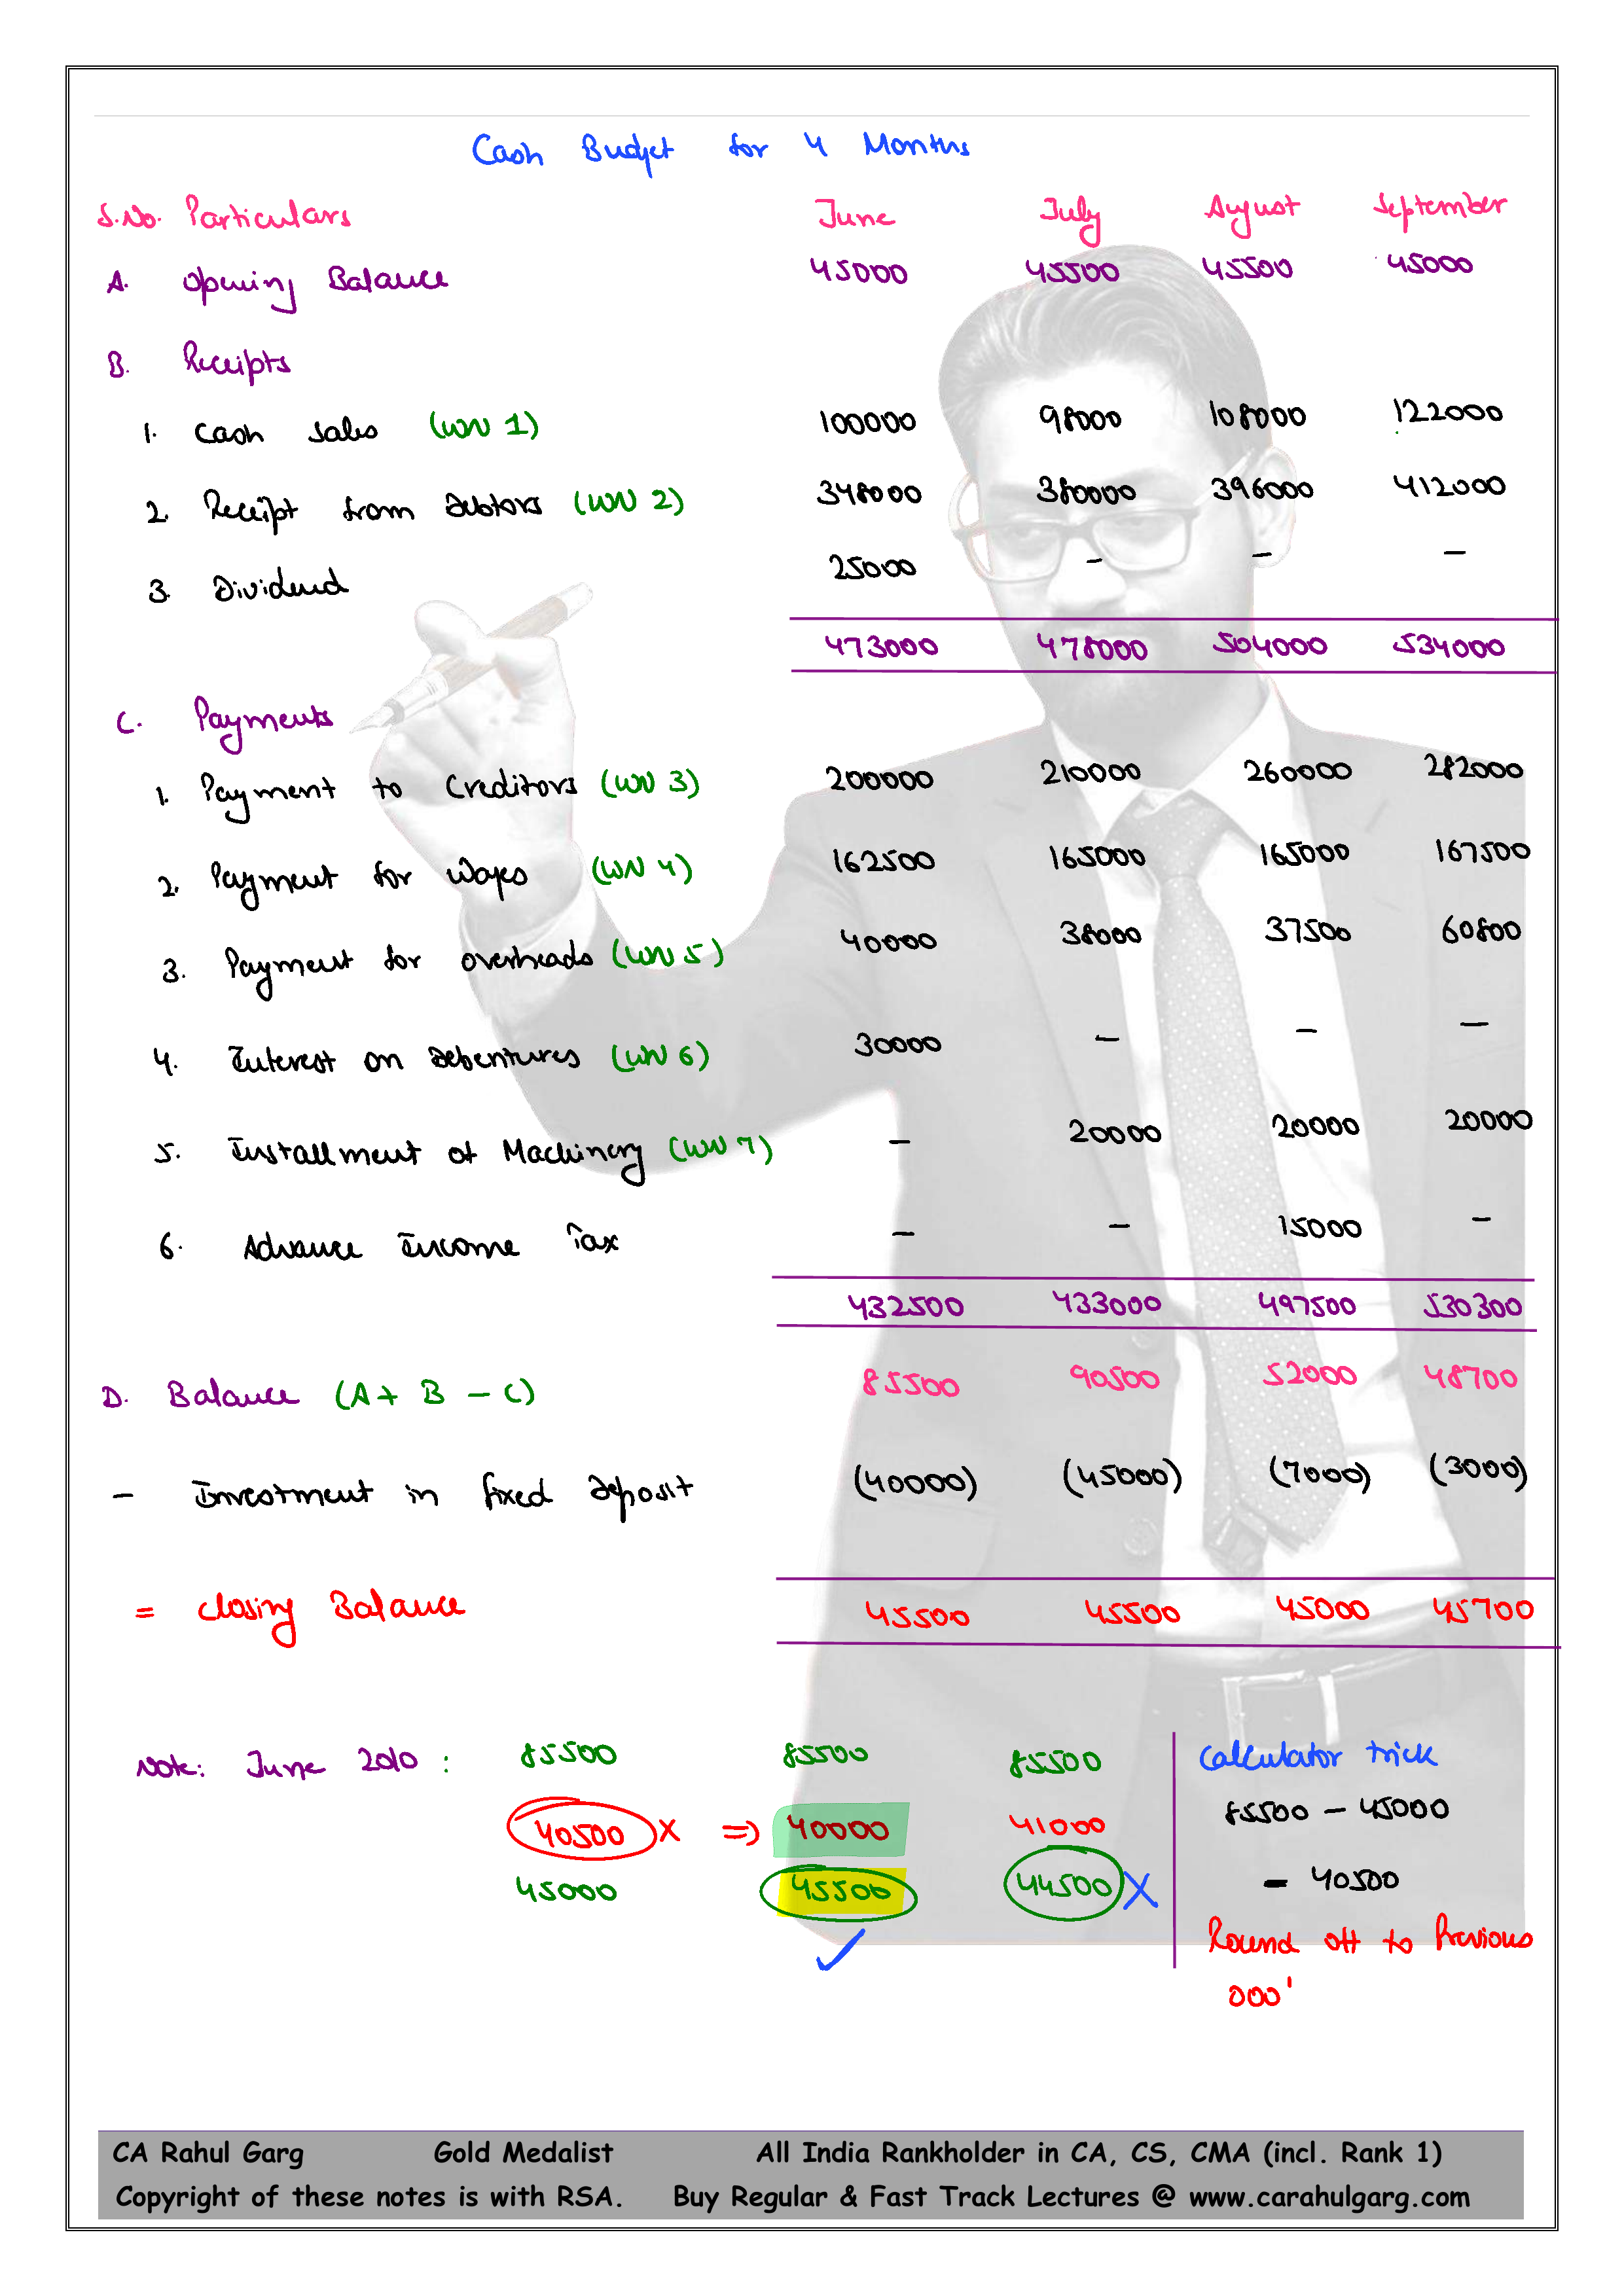 Cash Budget for 4 Months
S.No. Particulars June July August September
A. Opening Balance 45000 45500 45500 45000
B. Receipts
1. Cash Sales (WN 1) 100000 98000 108000 122000
2. Receipt from Debtors (WN 2) 348000 380000 396000 412000
3. Dividend 25000 - - -
473000 478000 504000 534000
C. Payments
1. Payment to Creditors (WN 3) 200000 210000 260000 282000
2. Payment for Wages (WN 4) 162500 165000 165000 167500
3. Payment for overheads (WN 5) 40000 38000 37500 60800
4. Interest on Debentures (WN 6) 30000 - - -
5. Installment of Machinery (WN 7) - 20000 20000 20000
6. Advance Income Tax - - 15000 -
432500 433000 497500 530300
D. Balance (A + B - C) 85500 90500 52000 48700
- Investment in fixed Deposit (40000) (45000) (7000) (3000)
= Closing Balance 45500 45500 45000 45700
Note: June 2010 : 85500 85500 85500 Calculator trick
40500 X => 40000 41000 85500 - 45000
45000 45500 44500 X = 40500
✓ Round off to Previous
000'
CA Rahul Garg Gold Medalist All India Rankholder in CA, CS, CMA (incl. Rank 1)
Copyright of these notes is with RSA. Buy Regular & Fast Track Lectures @ www.carahulgarg.com